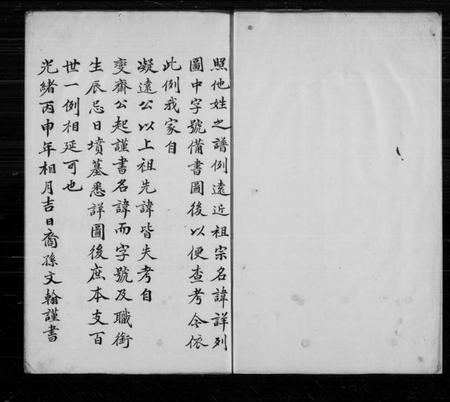 照他姓之譜例遠近祖宗名諱詳列
圖中字號備書圖後以便查考今依
此例我家自
凝遠公以上祖先諱皆失考自
燮齋公起謹書名諱而字號及職銜
生辰忌日墳墓悉詳圖後庶本支百
世一例相延可也
光緒丙申年相月吉日裔孫文翰謹書